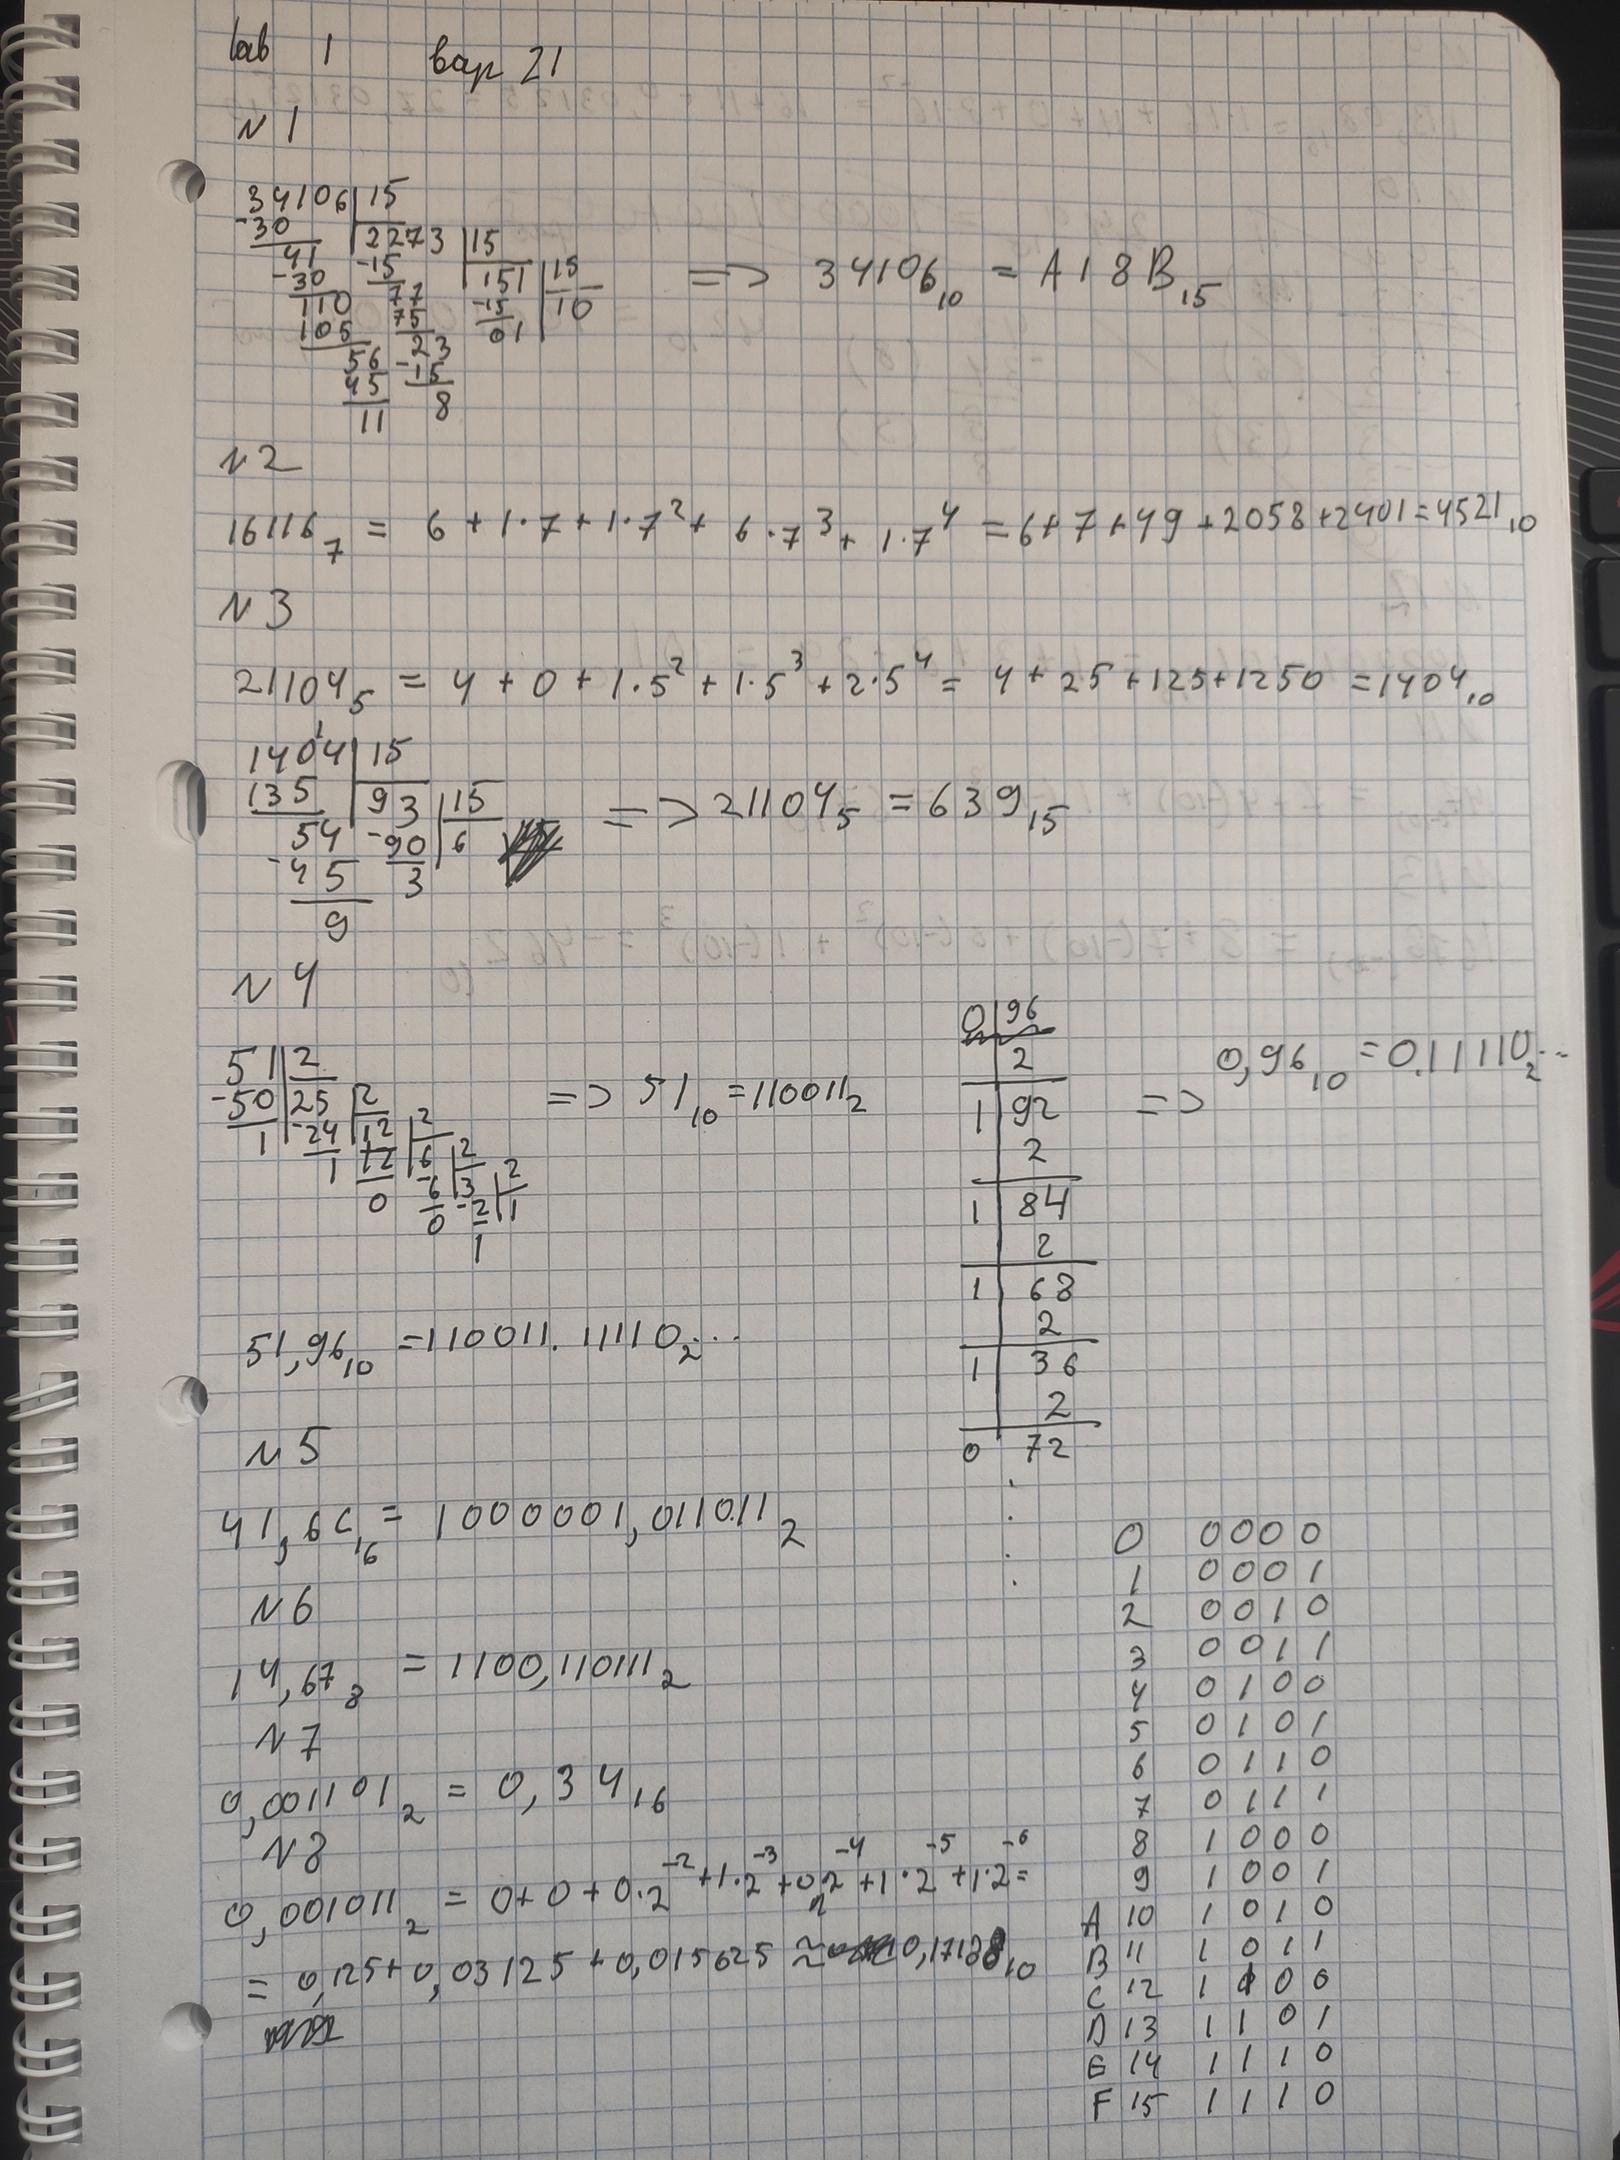 lab 1 вар 21
N 1
34106 | 15
-30 | 2273 | 15
41 -15 | 151 | 15
-30 77 -15 | 10
110 75 01
105 -23
56 -15
45 8
11
=> 34106₁₀ = A18B₁₅
N 2
16116₇ = 6 + 1·7 + 1·7² + 6·7³ + 1·7⁴ = 6+7+49+2058+2401=4521₁₀
N 3
21104₅ = 4 + 0 + 1·5² + 1·5³ + 2·5⁴ = 4 + 25 + 125 + 1250 = 1404₁₀
1404 | 15
135 | 93 | 15
54 -90 | 6
-45 3
9
=> 21104₅ = 639₁₅
N 4
51 | 2
-50 | 25 | 2
1 -24 | 12 | 2
1 12 | 6 | 2
0 -6 | 3 | 2
0 -2 | 1
1
=> 51₁₀ = 110011₂
0 | 96
2
1 | 92
2
1 | 84
2
1 | 68
2
1 | 36
2
0 72
=> 0,96₁₀ = 0.11110₂...
51,96₁₀ = 110011.11110₂...
N 5
41,6C₁₆ = 1000001,011011₂
N 6
14,67₈ = 1100,110111₂
N 7
0,001101₂ = 0,34₁₆
N 8
0,001011₂ = 0+0+0·2⁻²+1·2⁻³+0·2⁻⁴+1·2⁻⁵+1·2⁻⁶=
= 0,125+0,03125+0,015625 ≈ 0,17188₁₀
0 0000
1 0001
2 0010
3 0011
4 0100
5 0101
6 0110
7 0111
8 1000
9 1001
A 10 1010
B 11 1011
C 12 1100
D 13 1101
E 14 1110
F 15 1110